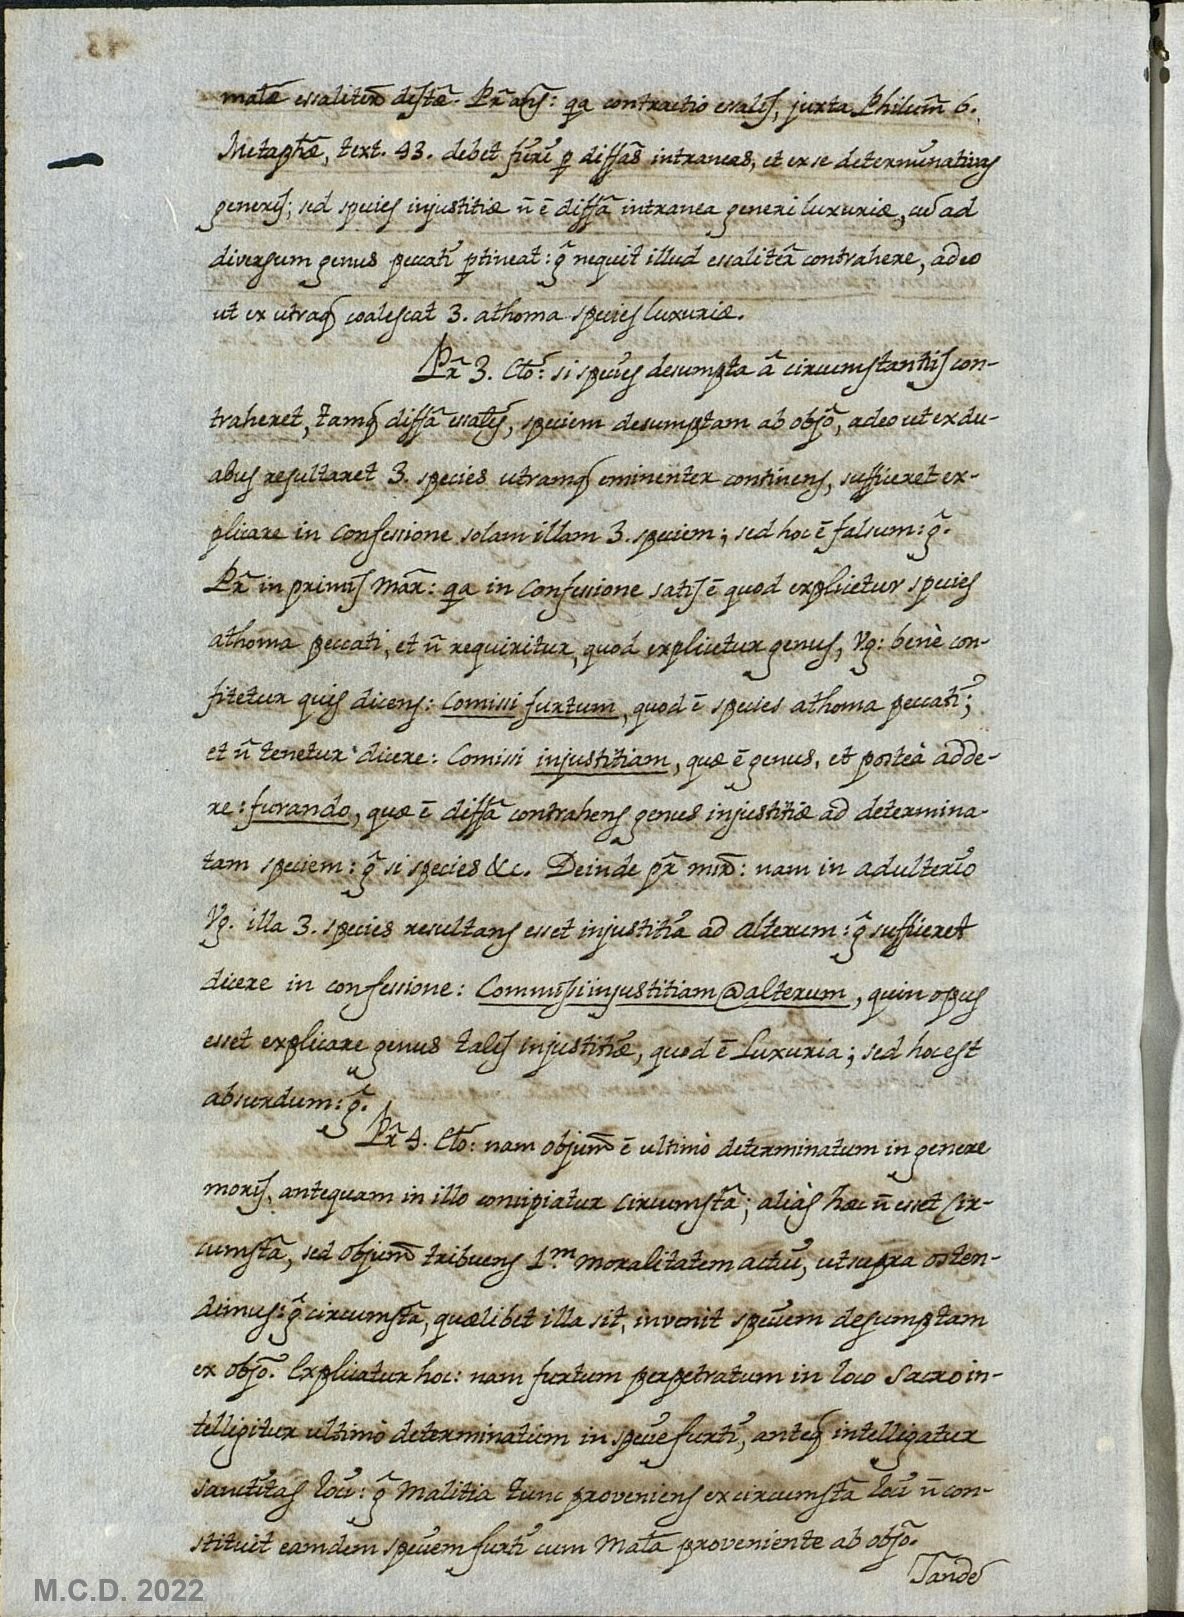 matã essaliter distã. Pr̃ ans̃: qa contractio essalis, juxta Philum̃ 6.
Metaphæ, text. 43. debet fieri p̃ diffãs intraneas, et ex se determinativas
generis; sed species injustitiæ ñ ē diffã intranea generi luxuriæ, cũ ad
diversum genus peccati ptineat: g̃ nequit illud essalitẽr contrahere, adeo
ut ex utraq̃ coalescat 3. athoma species luxuriæ.
Pr̃ 3. Clõ: si species desumpta à circumstantiis con-
traheret, tamq̃ diffã essalis, speciem desumptam ab objõ, adeo ut ex du-
abus resultaret 3. species utramq̃ eminenter continens, sufficeret ex-
plicare in confessione solam illam 3. speciem; sed hoc ē falsum: g̃.
Pr̃ in primis Mãr: qa in Confessione satis ē quod explicetur species
athoma peccati, et ñ requiritur, quod explicetur genus, Vg: benè con-
fitetur quis dicens: Comissi furtum, quod ē species athoma peccati;
et ñ tenetur dicere: Comissi injustitiam, quæ ē genus, et posteà adde-
re: furando, quæ ē diffã contrahens genus injustitiæ ad determina-
tam speciem: g̃ si species &c. Deinde pr̃ miñ: nam in adulterio
Vg. illa 3. species resultans esset injustitia ad alterum: g̃ sufficeret
dicere in confessione: Commissi injustitiam @ alterum, quin opus
esset explicare genus talis injustitiæ, quod ē Luxuria; sed hoc est
absurdum: g̃.
Pr̃ 4. Clõ: nam objum̃ ē ultimò determinatum in genere
moris, antequam in illo concipiatur circumstã; aliàs hæc ñ esset cir-
cumstã, sed objum̃ tribuens 1.m moralitatem actui, ut supra osten-
dimus: g̃ circumstã, quælibet illa sit, invenit speciem desumptam
ex objõ. Explicatur hoc: nam furtum perpetratum in loco sacro in-
telligitur ultimò determinatum in specie furti, anteq̃ intelligatur
sanctitas loci: g̃ Malitia tunc proveniens ex circumstã loci ñ con-
stituit eamdem speciem furti cum Matã proveniente ab objõ.
Tandẽ
M.C.D. 2022